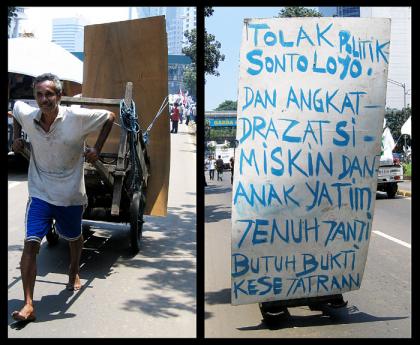 TOLAK POLITIK
SONTOLOYO.
DAN ANGKAT-
DRAZAT SI-
MISKIN DAN-
ANAK YATIM
TENUH JANJI
BUTUH BUKTI
KESETATRAAN